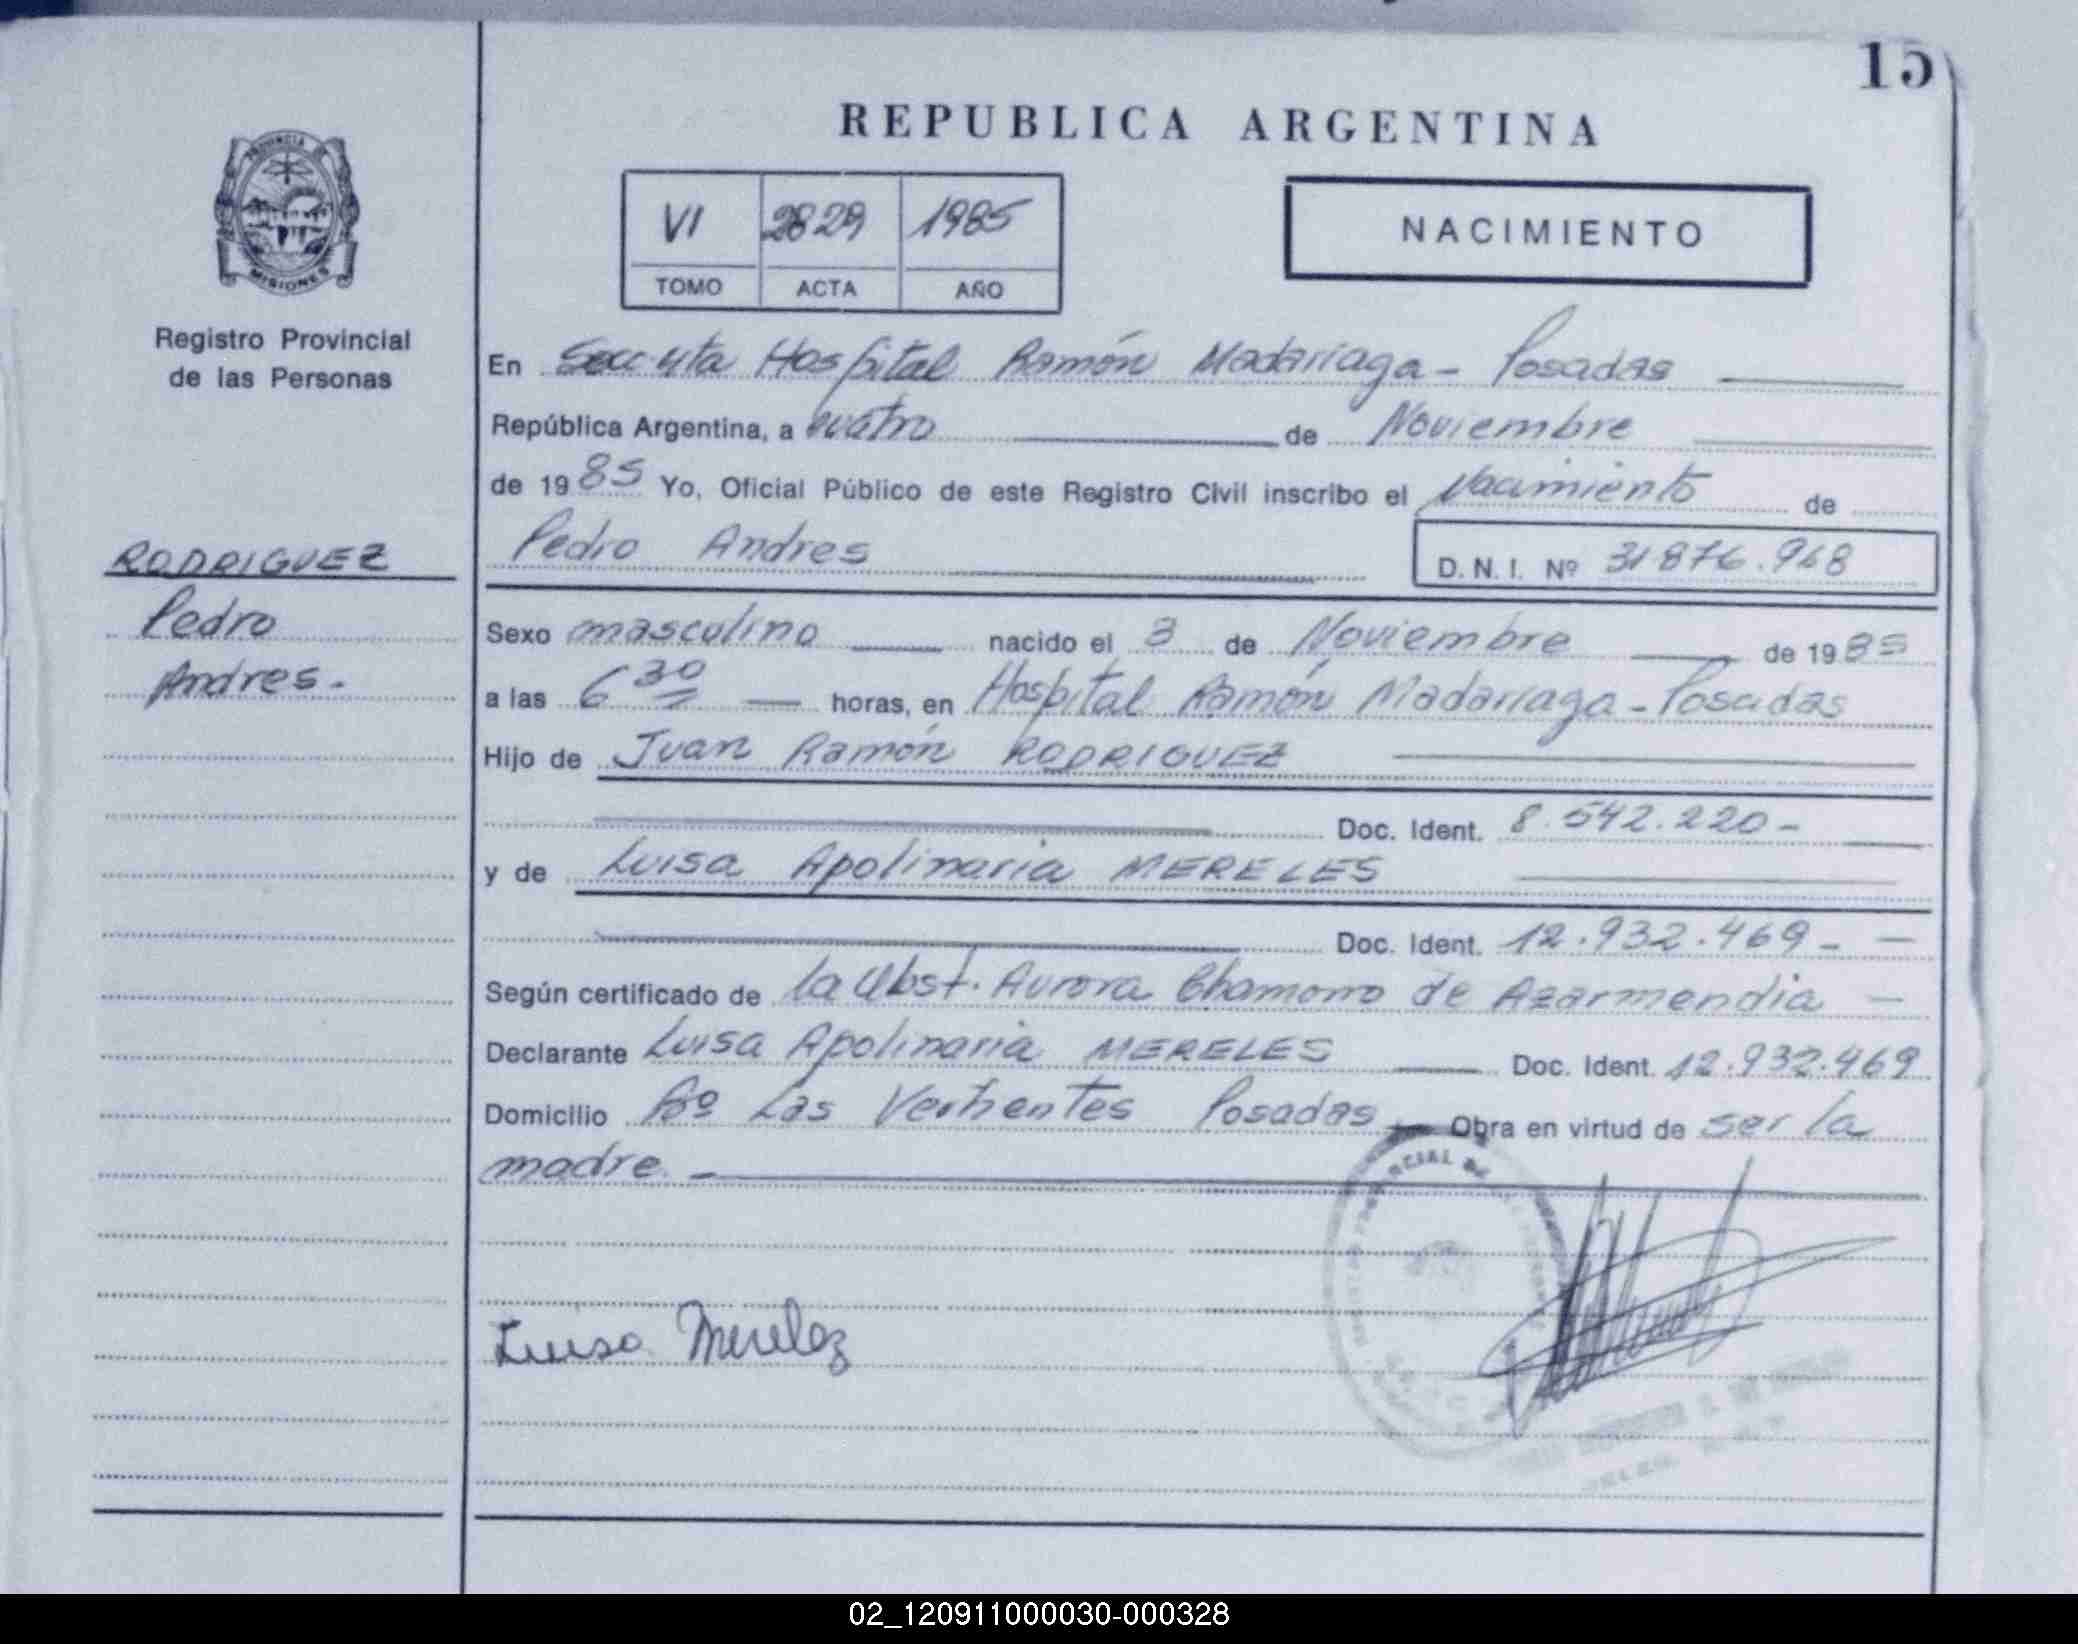 15
REPUBLICA ARGENTINA
PROVINCIA DE
MISIONES
Registro Provincial
de las Personas
VI 2829 1985
TOMO ACTA AÑO
NACIMIENTO
En Secc 4ta Hospital Ramón Madariaga - Posadas
República Argentina, a cuatro de Noviembre
de 1985 Yo, Oficial Público de este Registro Civil inscribo el Nacimiento de
Pedro Andres D.N.I. Nº 31876.968
RODRIGUEZ
Pedro
Andres.-
Sexo masculino nacido el 3 de Noviembre de 1985
a las 6 30 horas, en Hospital Ramón Madariaga - Posadas
Hijo de Juan Ramón RODRIGUEZ
Doc. Ident. 8.542.220-
y de Luisa Apolinaria MERELES
Doc. Ident. 12.932.469-
Según certificado de la Obst. Aurora Chamorro de Azarmendia
Declarante Luisa Apolinaria MERELES Doc. Ident. 12.932.469
Domicilio Bº Las Vertientes Posadas Obra en virtud de ser la
madre.-
Luisa Merelez
02_120911000030-000328